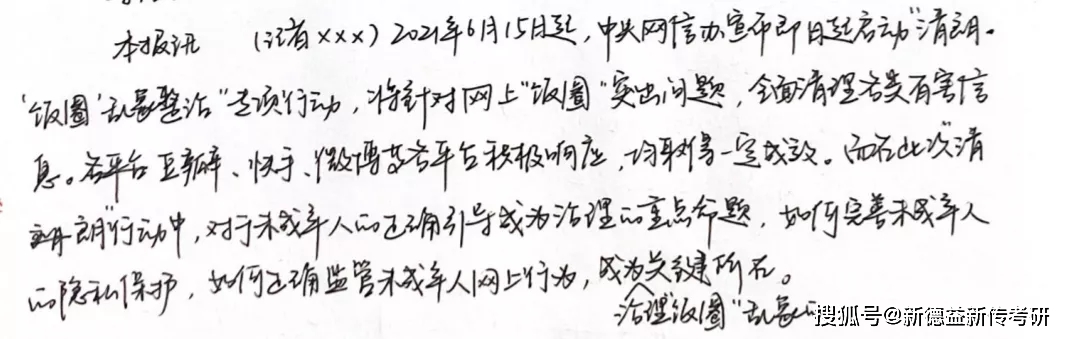 本报讯 (记者×××) 2021年6月15日起,中央网信办宣布即日起启动"清朗·
"饭圈"乱象整治"专项行动,将针对网上"饭圈"突出问题,全面清理各类有害信
息。各平台豆瓣、快手、微博等各平台积极响应,均取得一定成效。而在此次"清
朗"行动中,对于未成年人的正确引导成为治理的重点命题,如何完善未成年人
的隐私保护,如何正确监管未成年人网上行为,成为关键所在。
治理"饭圈"乱象的
搜狐号@新德益新传考研